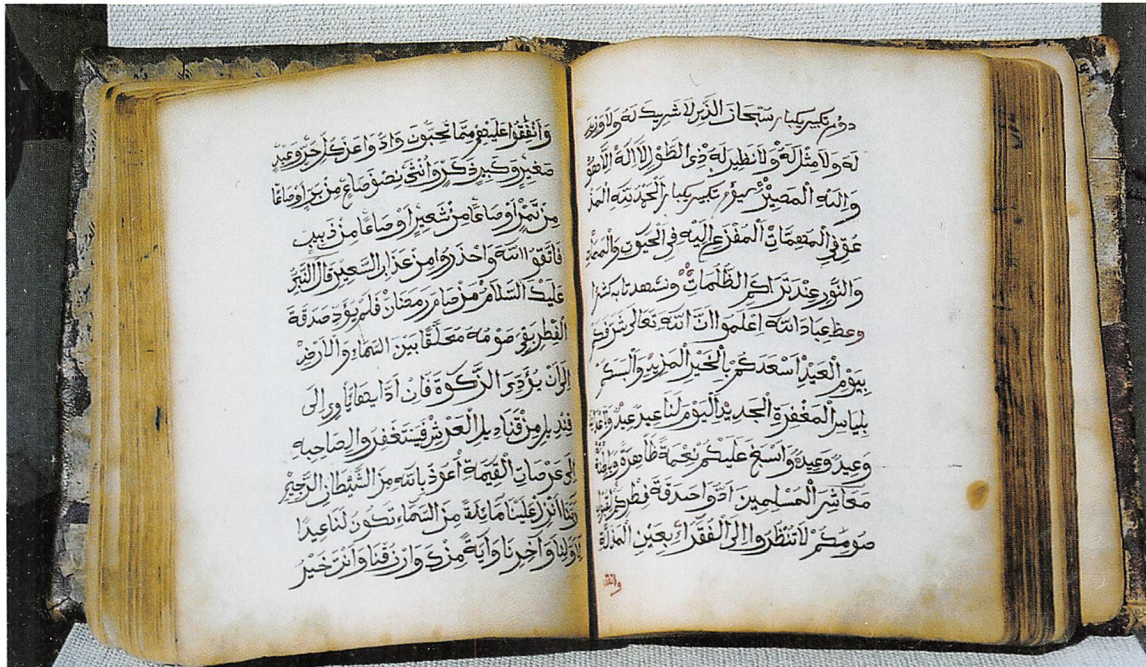 دوم تكبير بكبار سبحان الذي لا شريك له ولا وزير
له ولا مثل له ولا نظير له ذي الطول لا اله الا هو
واليه المصير سيوم تكبير بكبار الحمد لله المد
عو في المهمات المفزع اليه في الحيوة والممات
والنور عند تراكم الظلمات ونشهد
وعظ عباد الله اعلموا ان الله تعالى شرفكم
بيوم العيد اسعدكم بالخير المزيد والبسكم
بلباس المغفرة الجديد اليوم لنا عيد
وعيد وعيد واسبغ عليكم نعمة ظاهرة وباطنة
معاشر المسلمين ادوا صدقة فطركم
صومكم لا تنظروا الى الفقراء بعين المذلة
وانفقوا
وانفقوا عليهم مما تحبون وادوا عن كل حر وعبد
صغير وكبير ذكر وانثى نصف صاع من بر او صاعا
من تمر او صاعا من شعير او صاعا من زبيب
فاتقوا الله واحذروا من عذاب السعير قال النبي
عليه السلام من صام رمضان فلم يؤد صدقة
الفطر بقي صومه معلقا بين السماء والارض
الى ان يؤدي الزكوة فان اداها ياوي الى
قنديل من قناديل العرش فيستغفر لصاحبه
الى عرصات القيمة اعوذ بالله من الشيطان الرجيم
ربنا انزل علينا مائدة من السماء تكون لنا عيدا
لاولنا وآخرنا وآية منك وارزقنا وانت خير